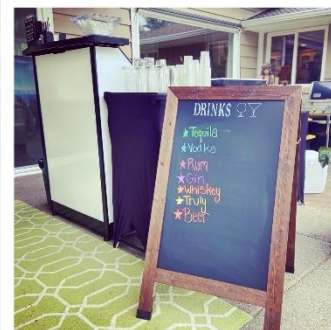 DRINKS
★Tequila
★Vodka
★Rum
★Gin
★Whiskey
★Truly
★Beer